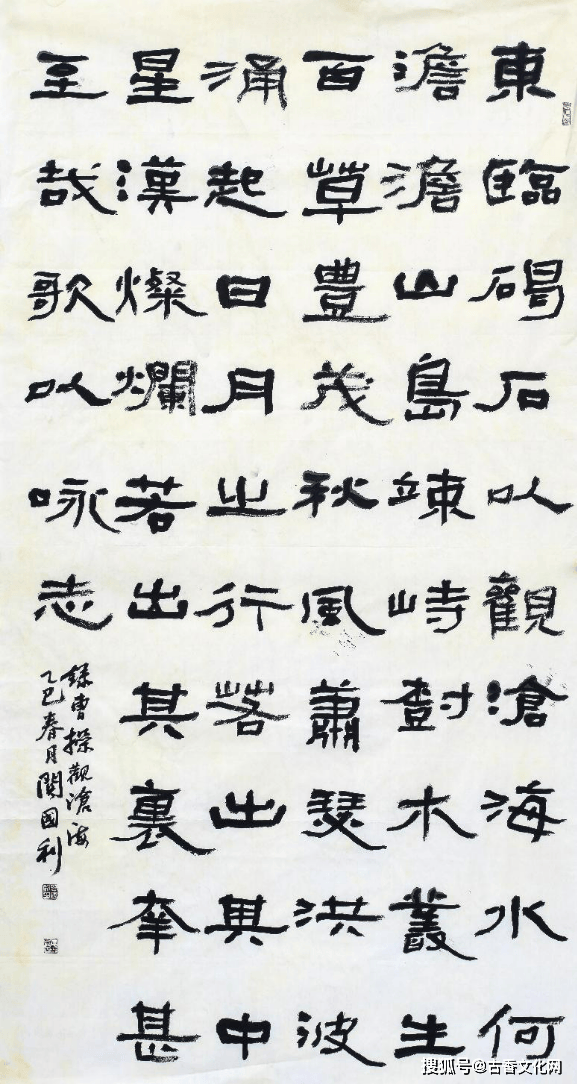 東臨碣石以觀滄海水何
澹澹山島竦峙尌木叢生
百草豐茂秋風蕭瑟洪波
涌起日月之行落出其中
星漢燦爛若出其裏幸甚
至哉歌以咏志
錄曹操觀滄海
乙巳春月關國利
搜狐号@古香文化网